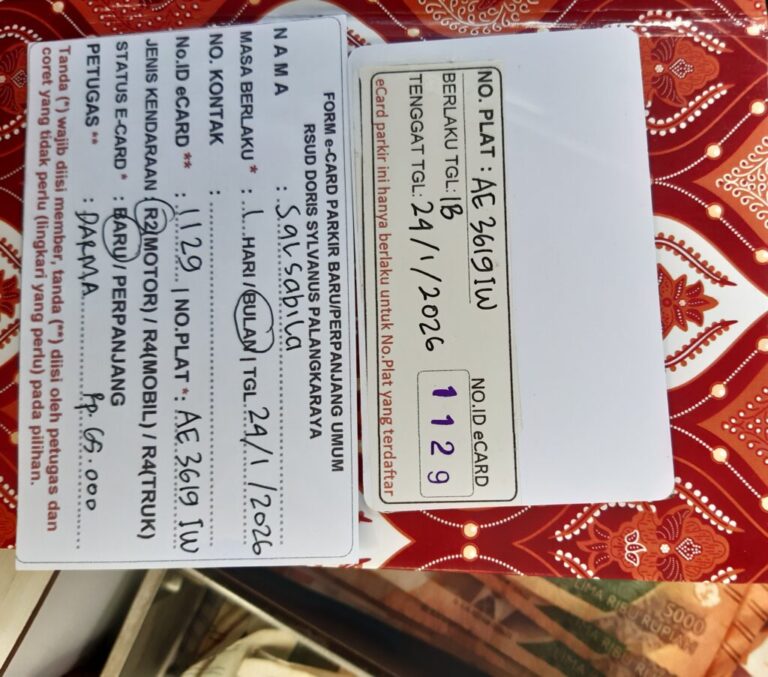 NO. PLAT : AE 3619 IW
BERLAKU TGL: 1B
TENGGAT TGL: 24/1/2026
NO.ID eCARD
1129
eCard parkir ini hanya berlaku untuk No.Plat yang terdaftar
FORM e-CARD PARKIR BARU/PERPANJANG UMUM
RSUD DORIS SYLVANUS PALANGKARAYA
NAMA : Salsabila
MASA BERLAKU * : 1 HARI / BULAN | TGL 24/1/2026
NO. KONTAK :
No.ID eCARD** : 1129 | NO.PLAT*: AE 3619 IW
JENIS KENDARAAN : R2(MOTOR) / R4(MOBIL) / R4(TRUK)
STATUS E-CARD * : BARU / PERPANJANG
PETUGAS ** : DARMA Rp. 65.000
Tanda (*) wajib diisi member, tanda (**) diisi oleh petugas dan
coret yang tidak perlu (lingkari yang perlu) pada pilihan.
5000
LIMA RIBU RUPIAH
LIMA RIBU